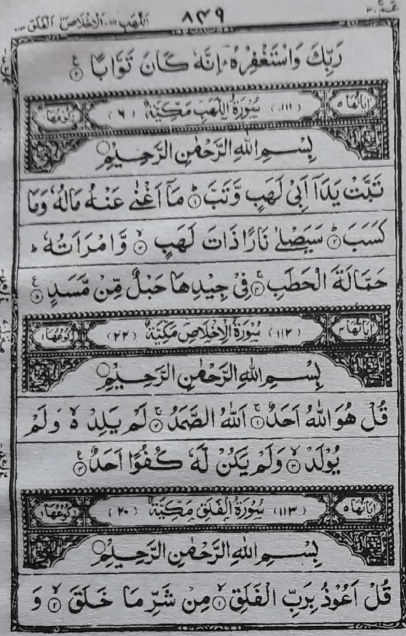 اللهب ١١١ الاخلاص ١١٢ الفلق ١١٣
٨٤٩
عمّ ٣٠
رَبِّكَ وَاسْتَغْفِرْهُ ؕ اِنَّهٗ كَانَ تَوَّابًا
اٰيَاتُهَا ٥ (١١١) سُوْرَةُ اللَّهَبِ مَكِّيَّةٌ (٦) رُكُوْعُهَا ١
بِسْمِ اللّٰهِ الرَّحْمٰنِ الرَّحِيْمِ
تَبَّتْ يَدَاۤ اَبِيْ لَهَبٍ وَّتَبَّ ۝١ مَاۤ اَغْنٰى عَنْهُ مَالُهٗ وَمَا
كَسَبَ ۝٢ سَيَصْلٰى نَارًا ذَاتَ لَهَبٍ ۝٣ وَّامْرَاَتُهٗ ؕ
حَمَّالَةَ الْحَطَبِ ۝٤ فِيْ جِيْدِهَا حَبْلٌ مِّنْ مَّسَدٍ ۝٥
اٰيَاتُهَا ٤ (١١٢) سُوْرَةُ الْاِخْلَاصِ مَكِّيَّةٌ (٢٢) رُكُوْعُهَا ١
بِسْمِ اللّٰهِ الرَّحْمٰنِ الرَّحِيْمِ
قُلْ هُوَ اللّٰهُ اَحَدٌ ۝١ اَللّٰهُ الصَّمَدُ ۝٢ لَمْ يَلِدْ ۙ وَلَمْ
يُوْلَدْ ۝٣ وَلَمْ يَكُنْ لَّهٗ كُفُوًا اَحَدٌ ۝٤
اٰيَاتُهَا ٥ (١١٣) سُوْرَةُ الْفَلَقِ مَكِّيَّةٌ (٢٠) رُكُوْعُهَا ١
بِسْمِ اللّٰهِ الرَّحْمٰنِ الرَّحِيْمِ
قُلْ اَعُوْذُ بِرَبِّ الْفَلَقِ ۝١ مِنْ شَرِّ مَا خَلَقَ ۝٢ وَ